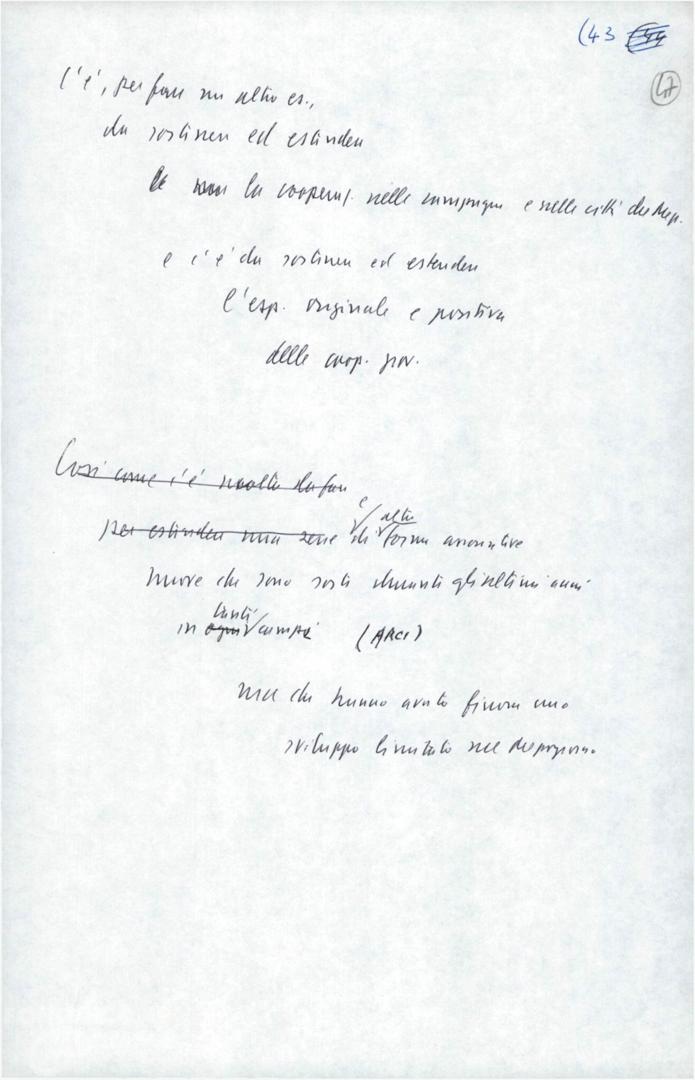 (43
47
C'è, per fare un altro es.,
da sostenere ed estendere
la cooperaz. nelle campagne e nelle città del Mezz.
e c'è da sostenere ed estendere
l'esp. originale e positiva
delle coop. giov.
Così come c'è molto da fare
e altre
per estendere una serie di forme associative
nuove che sono sorte durante gli ultimi anni
tanti
in ogni campi (ARCI)
ma che hanno avuto finora uno
sviluppo limitato nel Mezzogiorno